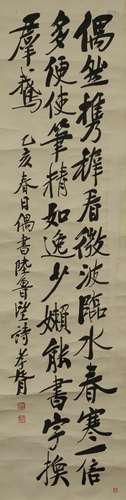 偶然携稚看微波臨水春寒一倍
多便使筆精如逸少嬾能書字換
羣鵝
乙亥春日偶書陸魯望詩孝胥